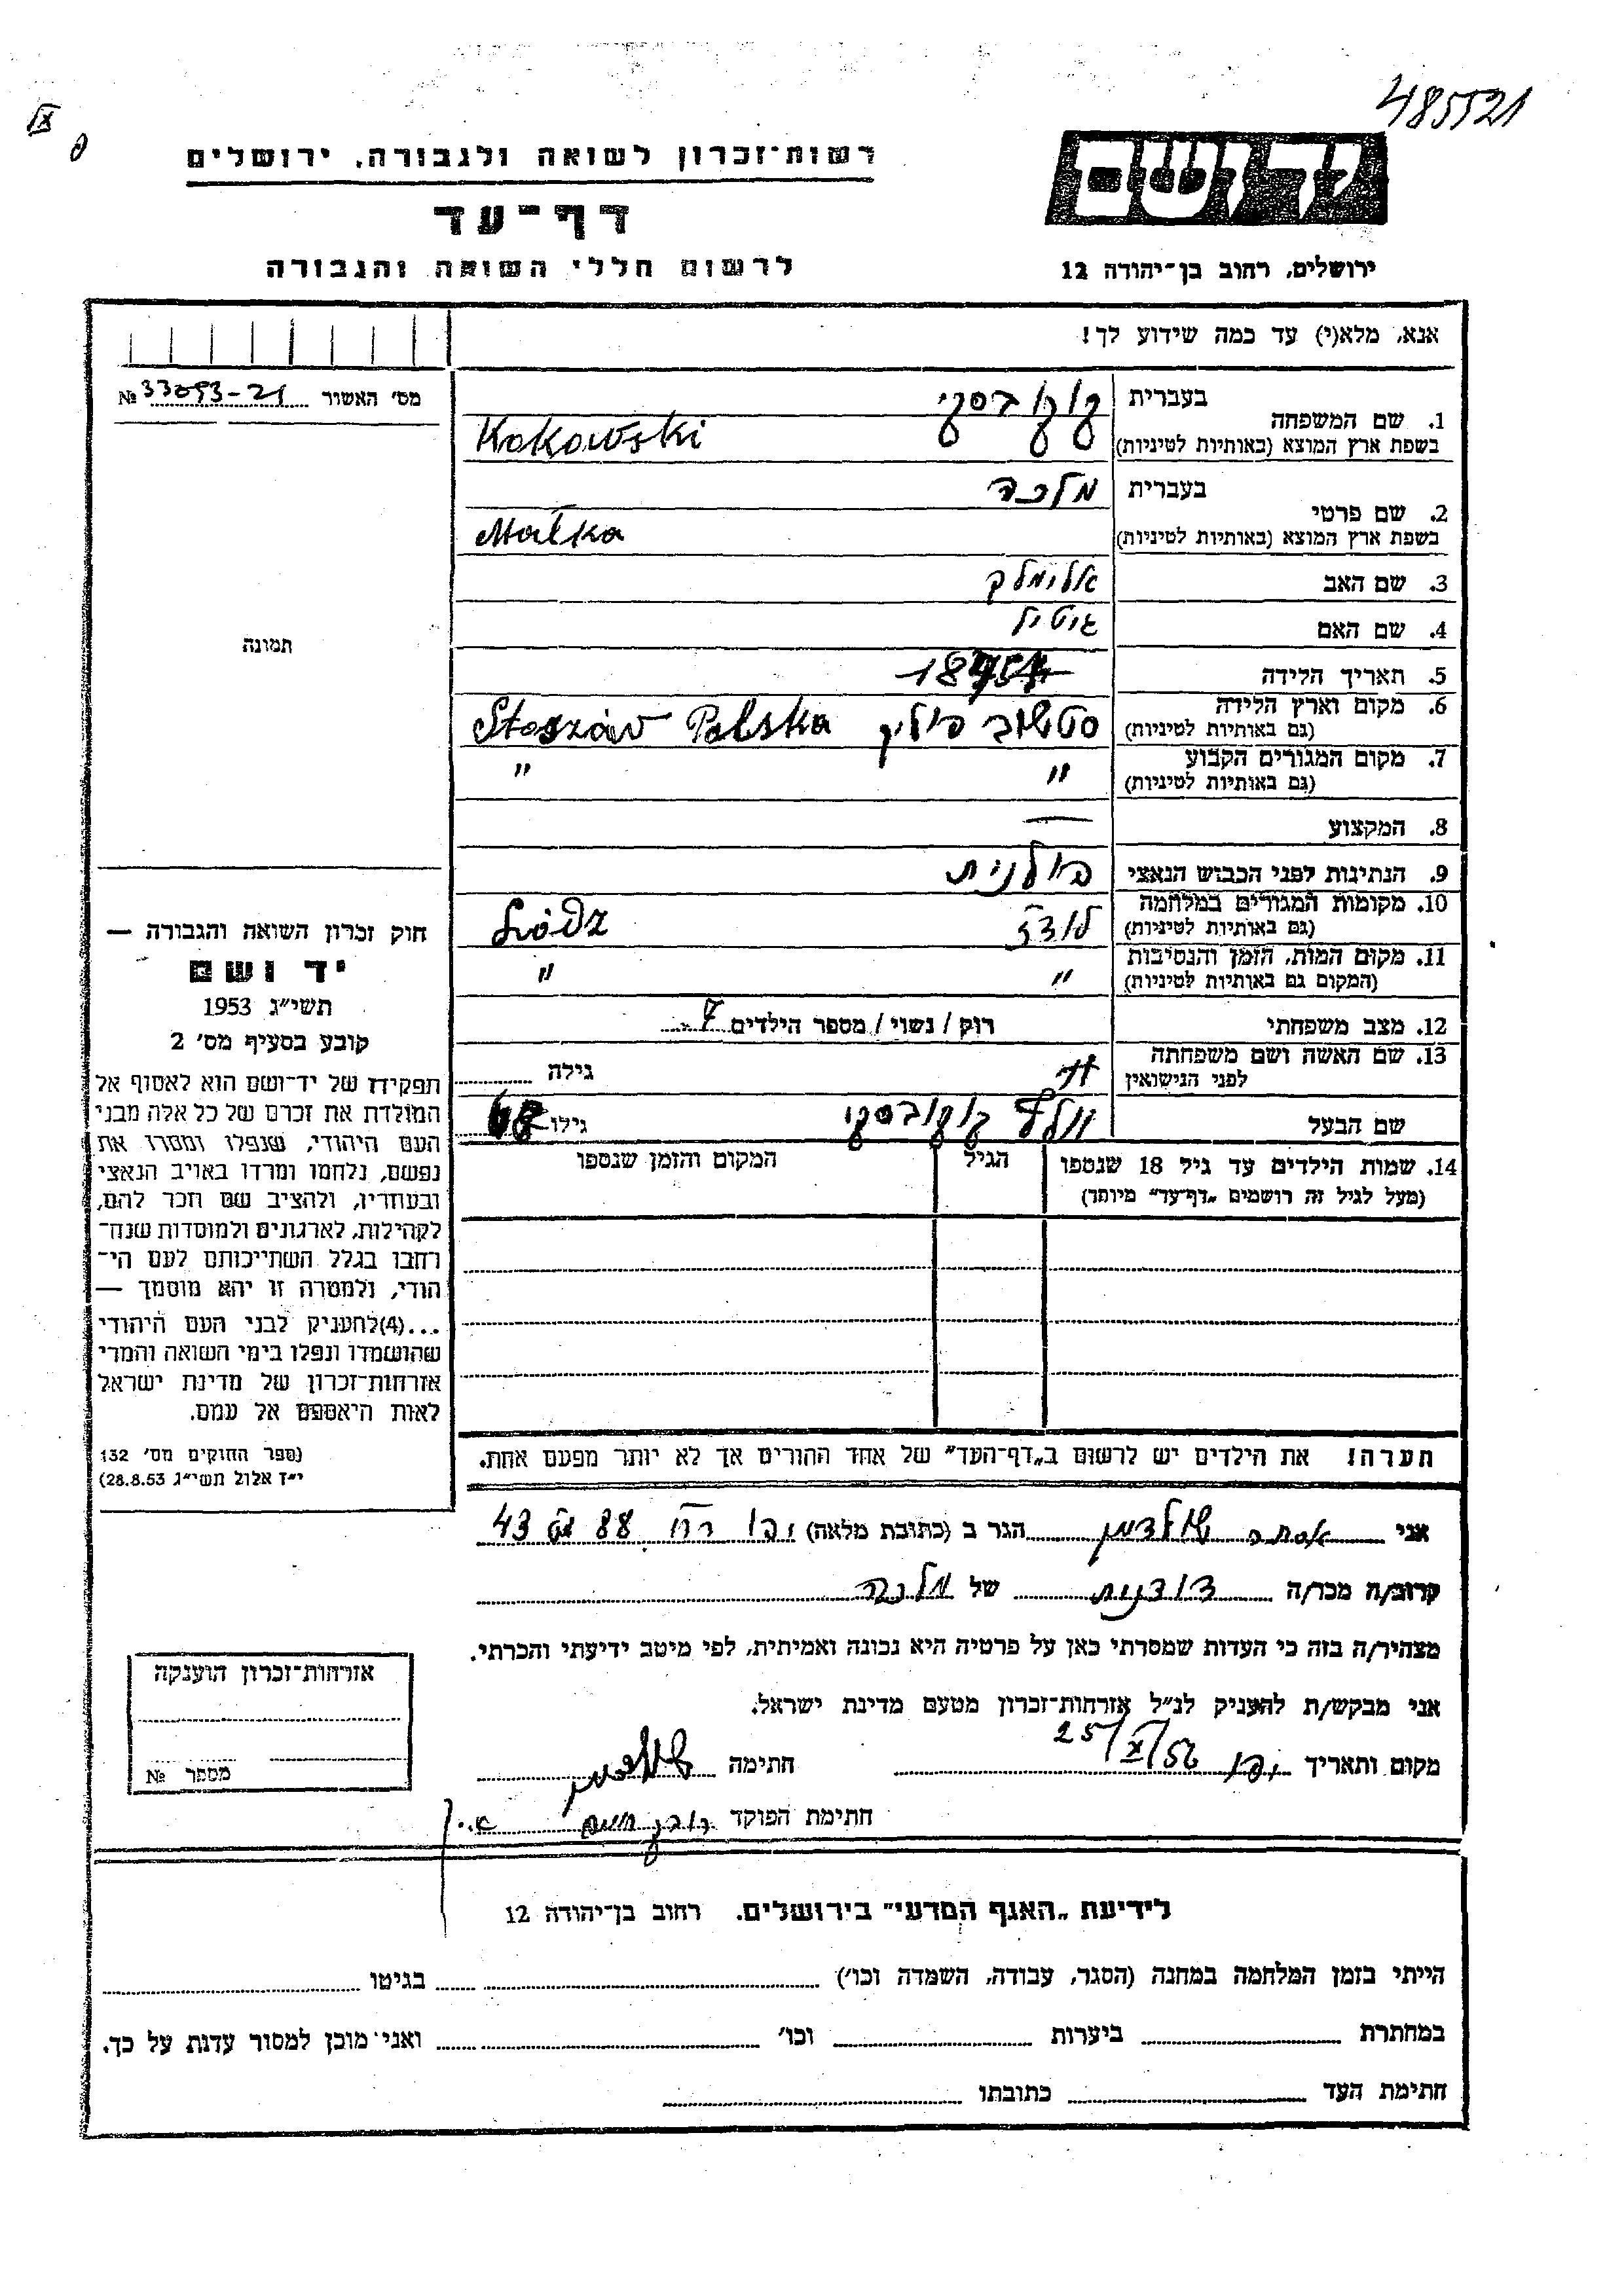 485521
IX
רשות־זכרון לשואה ולגבורה, ירושלים
דף־עד
לרשום חללי השואה והגבורה
יד ושם
ירושלים, רחוב בן־יהודה 12
אנא, מלא(י) עד כמה שידוע לך!
מס' האשור № 33093-21
1. שם המשפחה
בעברית קוקובסקי
בשפת ארץ המוצא (באותיות לטיניות) Kokowski
2. שם פרטי
בעברית מלכה
בשפת ארץ המוצא (באותיות לטיניות) Małka
3. שם האב אלימלך
4. שם האם גיטיל
5. תאריך הלידה
6. מקום וארץ הלידה (גם באותיות לטיניות) סטשוב פולין Staszów Polska
7. מקום המגורים הקבוע (גם באותיות לטיניות) " "
8. המקצוע —
9. הנתינות לפני הכבוש הנאצי פולנית
10. מקומות המגורים במלחמה (גם באותיות לטיניות) לודז' Łódz
11. מקום המות, הזמן והנסיבות (המקום גם באותיות לטיניות) " "
12. מצב משפחתי רוק / נשוי / מספר הילדים 7
13. שם האשה ושם משפחתה לפני הנישואין גילה
שם הבעל קוקובסקי גילו
14. שמות הילדים עד גיל 18 שנספו (מעל לגיל זה רושמים „דף־עד" מיוחד)
הגיל
המקום והזמן שנספו
הערה! את הילדים יש לרשום ב„דף־העד" של אחד ההורים אך לא יותר מפעם אחת.
תמונה
חוק זכרון השואה והגבורה —
יד ושם
תשי"ג 1953
קובע בסעיף מס' 2
תפקידו של יד־ושם הוא לאסוף אל
המולדת את זכרם של כל אלה מבני
העם היהודי, שנפלו ומסרו את
נפשם, נלחמו ומרדו באויב הנאצי
ובעוזריו, ולהציב שם וזכר להם,
לקהילות, לארגונים ולמוסדות שנח־
רבו בגלל השתייכותם לעם הי־
הודי, ולמטרה זו יהא מוסמך —
...(4)להעניק לבני העם היהודי
שהושמדו ונפלו בימי השואה והמרי
אזרחות־זכרון של מדינת ישראל
לאות היאספם אל עמם.
(ספר החוקים מס' 132
י"ז אלול תשי"ג 28.8.53)
אני אסתר הגר ב (כתובת מלאה) יפו רח 88 43
קרוב/ה מכר/ה דודנית של מלכה
מצהיר/ה בזה כי העדות שמסרתי כאן על פרטיה היא נכונה ואמיתית, לפי מיטב ידיעתי והכרתי.
אני מבקש/ת להעניק לנ"ל אזרחות־זכרון מטעם מדינת ישראל.
מקום ותאריך יפו 25/X/56 חתימה
חתימת הפוקד
אזרחות־זכרון הוענקה
מספר №
לידיעת „האגף המדעי" בירושלים. רחוב בן־יהודה 12
הייתי בזמן המלחמה במחנה (הסגר, עבודה, השמדה וכו') בגיטו
במחתרת ביערות וכו' ואני מוכן למסור עדות על כך.
חתימת העד כתובתו